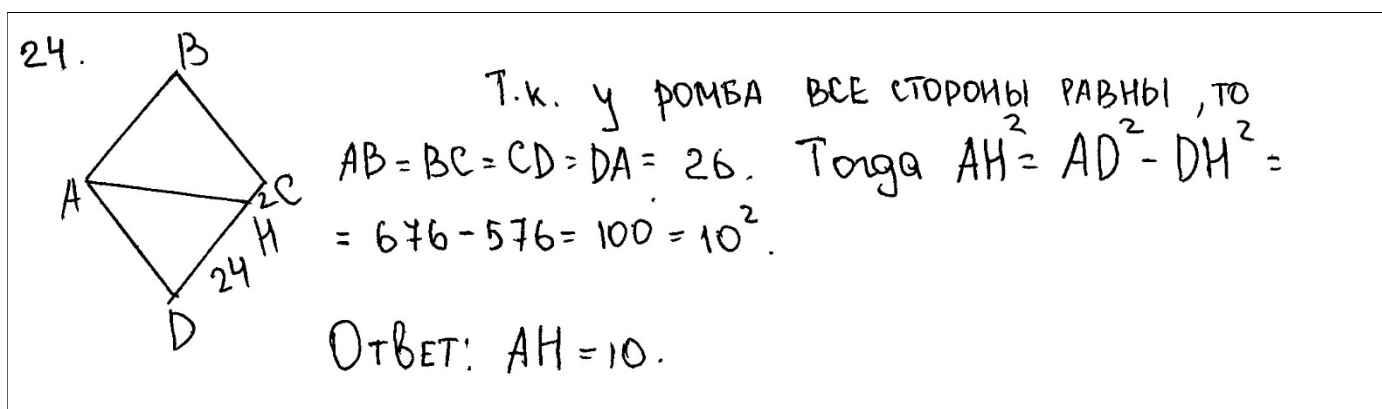 24.
B
Т.к. у РОМБА ВСЕ СТОРОНЫ РАВНЫ, ТО
A
2
C
H
24
D
AB = BC = CD = DA = 26. Тогда AH² = AD² - DH² =
= 676 - 576 = 100 = 10².
Ответ: AH = 10.